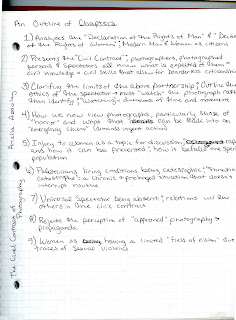 An Outline of Chapters
1) Analyzes the "Declaration of the Rights of Man" & "Dec
of the Rights of Women"; Modern Man & Women as citizens
2) Presents the "Civil Contract"; photographers, photographed
persons & spectators all know what is expected of them =
civil knowledge = civil skills that allow for borderless citizenship
3) Clarifying the limits of the above partnership; Outline the
ethics of the spectator = must "watch" the photograph rather
than identify; "Watching" = dimensions of time and movement
4) How we now view photographs, particularly those of
"horror" and ways that can be made into an
"emergency claim" (demands urgent action)
5) Injury to women as a topic for discussion;
and how it can be prevented; how is befalls the
population
6) Palestinians living conditions being catastrophic;
catastrophe = a chronic & prolonged situation that doesn't
interrupt routine
7) Universal Spectator being absent; relations w/ the
others in the civil contract
8) Rejects the perception of "approved" photography =
propaganda
9) Women as having a limited "field of vision" due
traces of sexual violence
The Civil Contract of
Photography
Ariella Azoulay